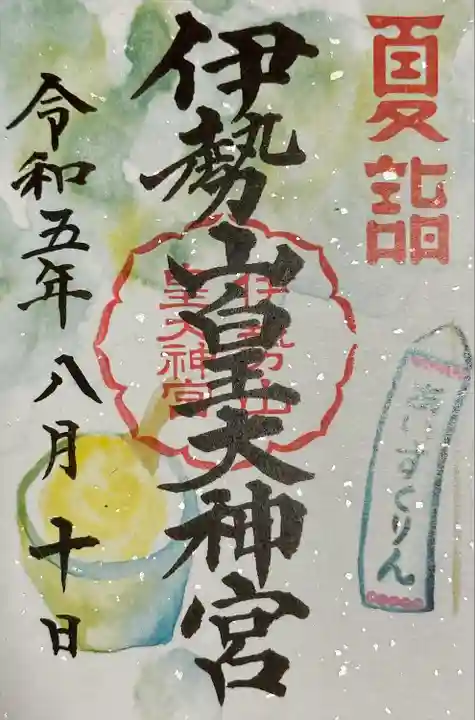 夏詣
伊勢山皇大神宮
伊勢山
皇大神宮
あいすくりん
令和五年八月十日